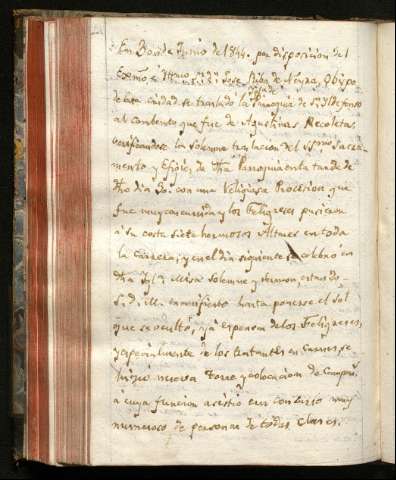 En 30 de Junio de 1844. por disposicion del
Exmo é Yltmo Sr. Dn. José Obispo
de esta ciudad se traslado la Parroquia de Sn. Yldefonso
al combento que fue de Agustinas Recoletas,
verificandose la solemne traslacion del SSmo Sacra-
mento y Efigies de dha Parroquia en la tarde de
dho dia 30. con una Religiosa Procesion que
fue muy concurrida y los Feligreses pusieron
á su costa siete hermosos Altares en toda
la carrera; y en el dia siguiente se celebró en
dha Ygla. Misa solemne y sermon, estando
S. D. M. manifiesto hasta ponerse el sol
que se ocultó, y á expensas de los Feligreses,
y especialmente de los tratantes en Carnes, se
hizo nueva Torre y colocacion de Campas.
á cuya funcion asistio un concurso muy
numeroso de personas de todas clases.